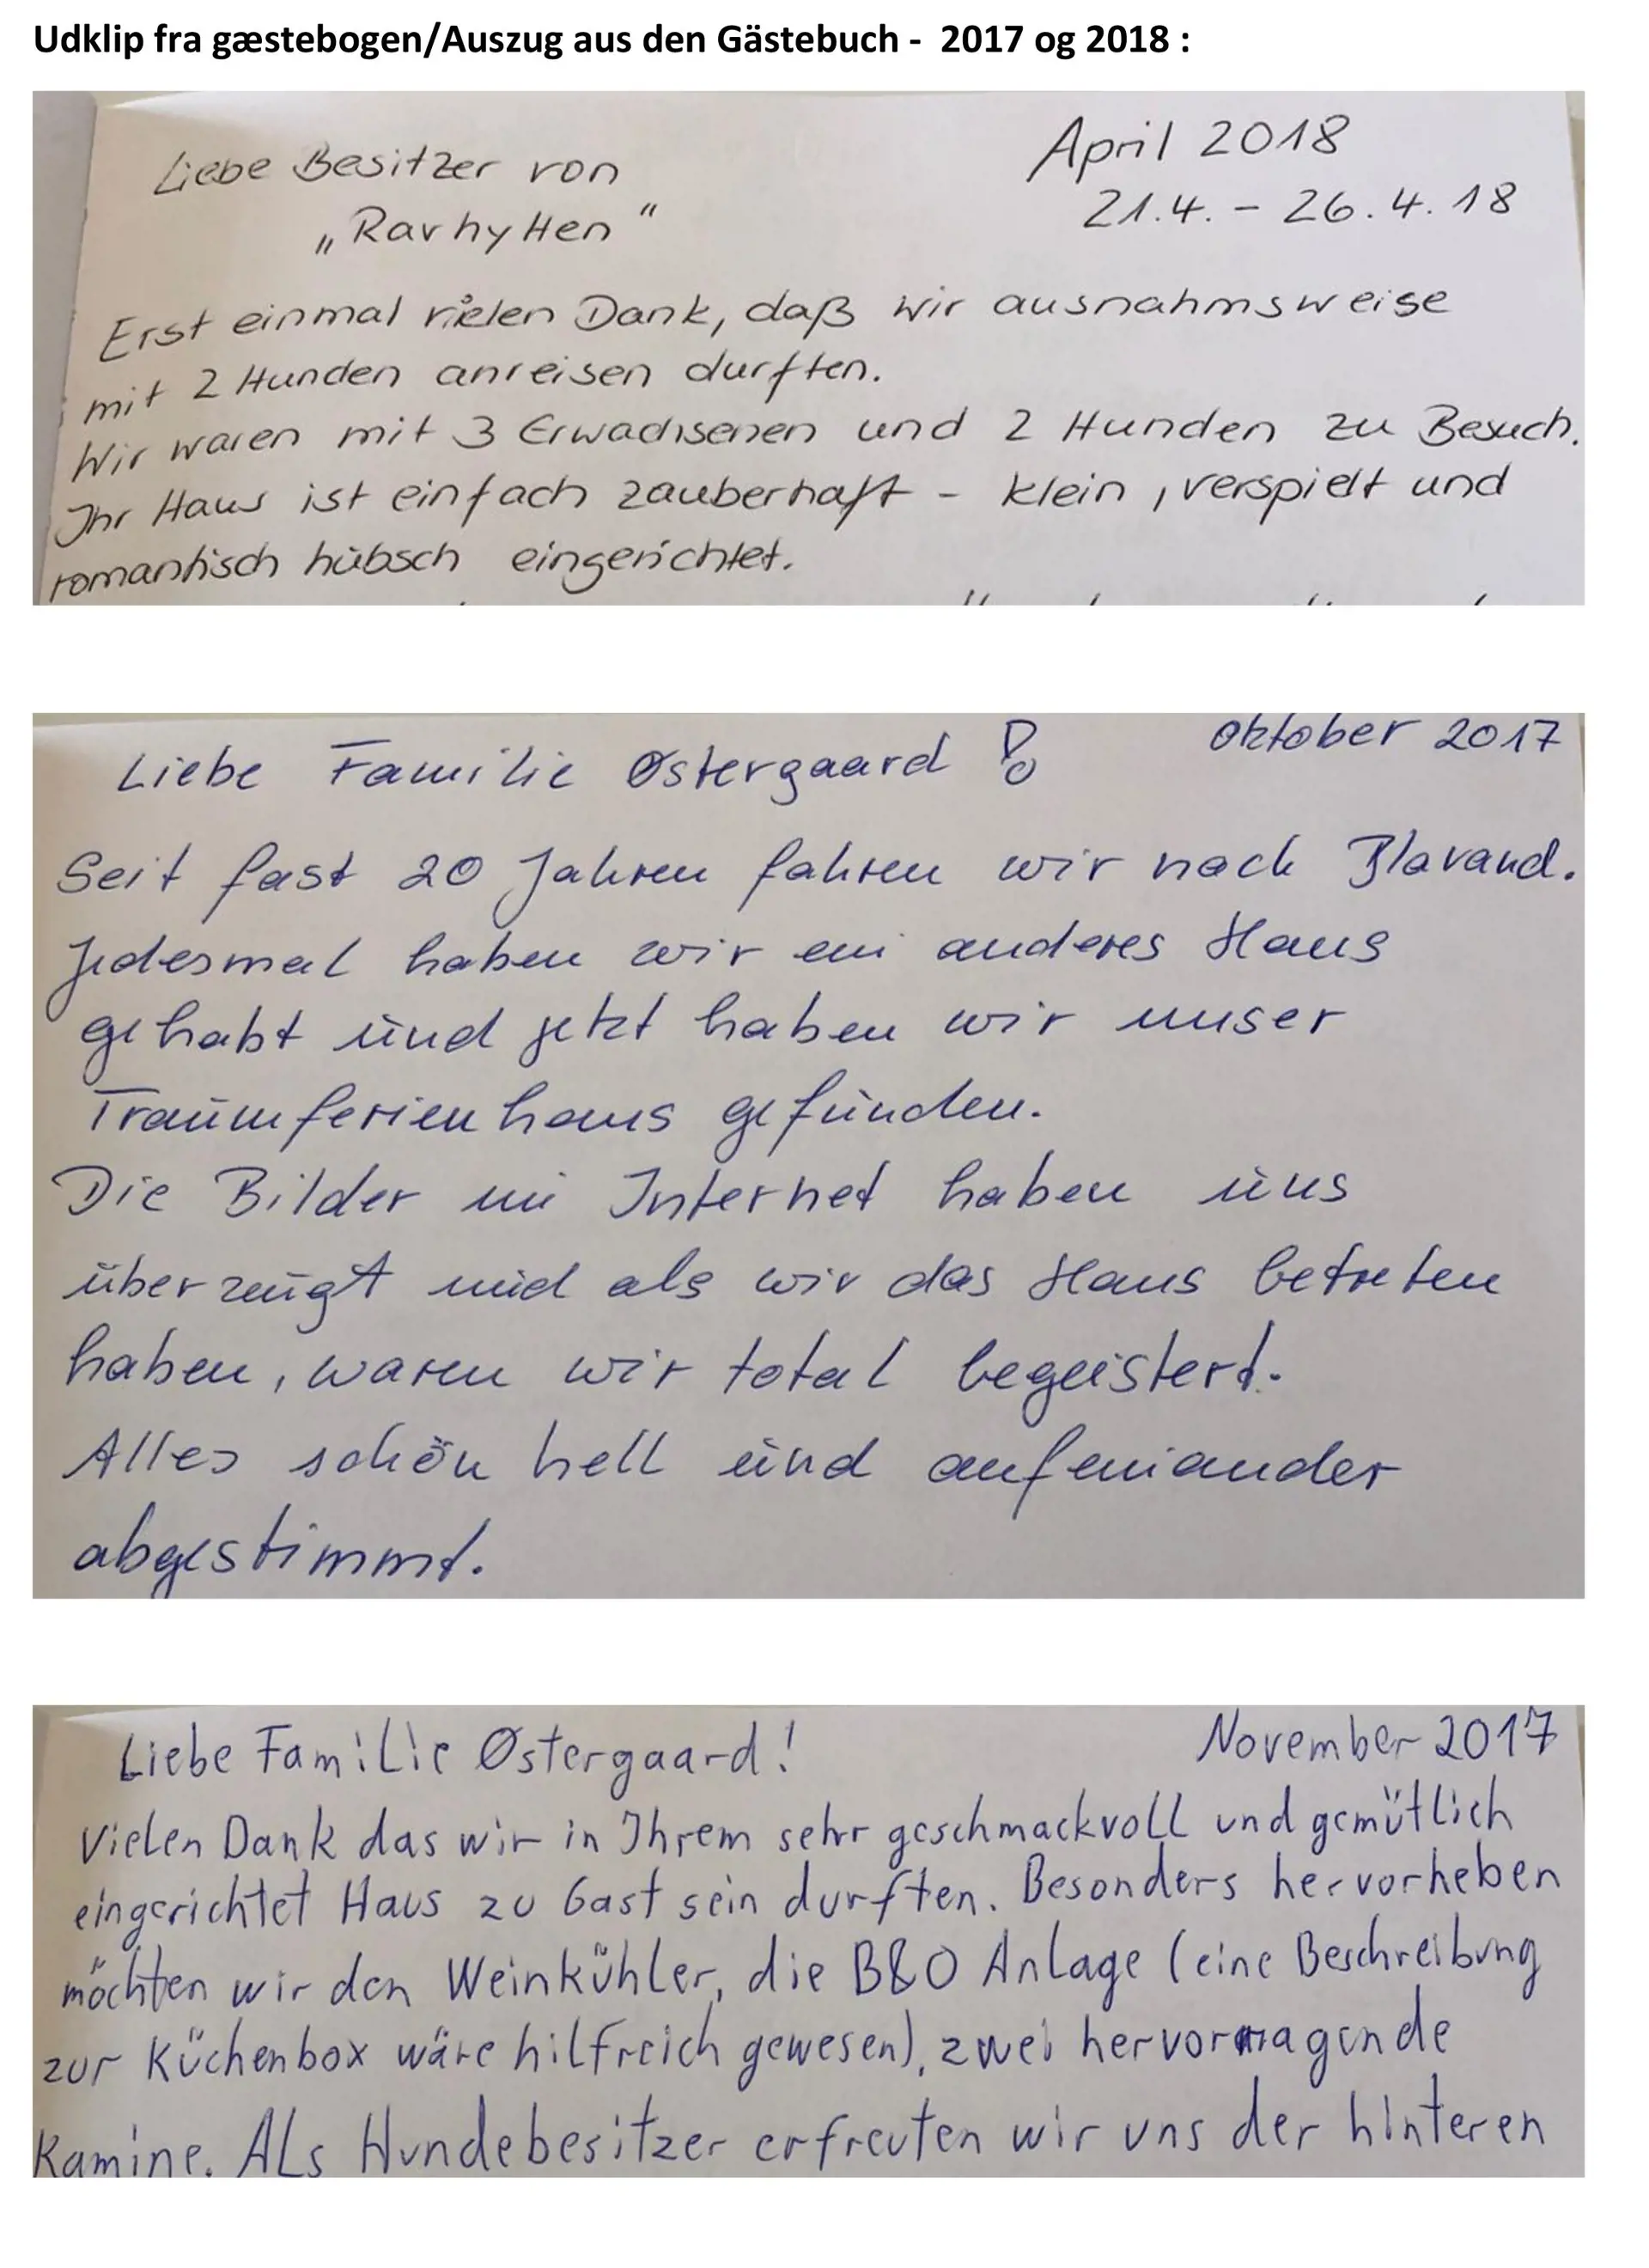 Udklip fra gæstebogen/Auszug aus den Gästebuch - 2017 og 2018 :
Liebe Besitzer von
„Ravhytten“
April 2018
21.4. - 26.4.18
Erst einmal vielen Dank, daß wir ausnahmsweise
mit 2 Hunden anreisen durften.
Wir waren mit 3 Erwachsenen und 2 Hunden zu Besuch.
Ihr Haus ist einfach zauberhaft - klein, verspielt und
romantisch hübsch eingerichtet.
Liebe Familie Østergaard !
Oktober 2017
Seit fast 20 Jahren fahren wir nach Blavand.
Jedesmal haben wir ein anderes Haus
gehabt und jetzt haben wir unser
Traumferienhaus gefunden.
Die Bilder im Internet haben uns
überzeugt und als wir das Haus betreten
haben, waren wir total begeistert.
Alles schön hell und aufeinander
abgestimmt.
Liebe Familie Østergaard!
November 2017
Vielen Dank das wir in Ihrem sehr geschmackvoll und gemütlich
eingerichtet Haus zu Gast sein durften. Besonders hervorheben
möchten wir den Weinkühler, die B&O Anlage (eine Beschreibung
zur Küchenbox wäre hilfreich gewesen), zwei hervorragende
Kamine. Als Hundebesitzer erfreuten wir uns der hinteren